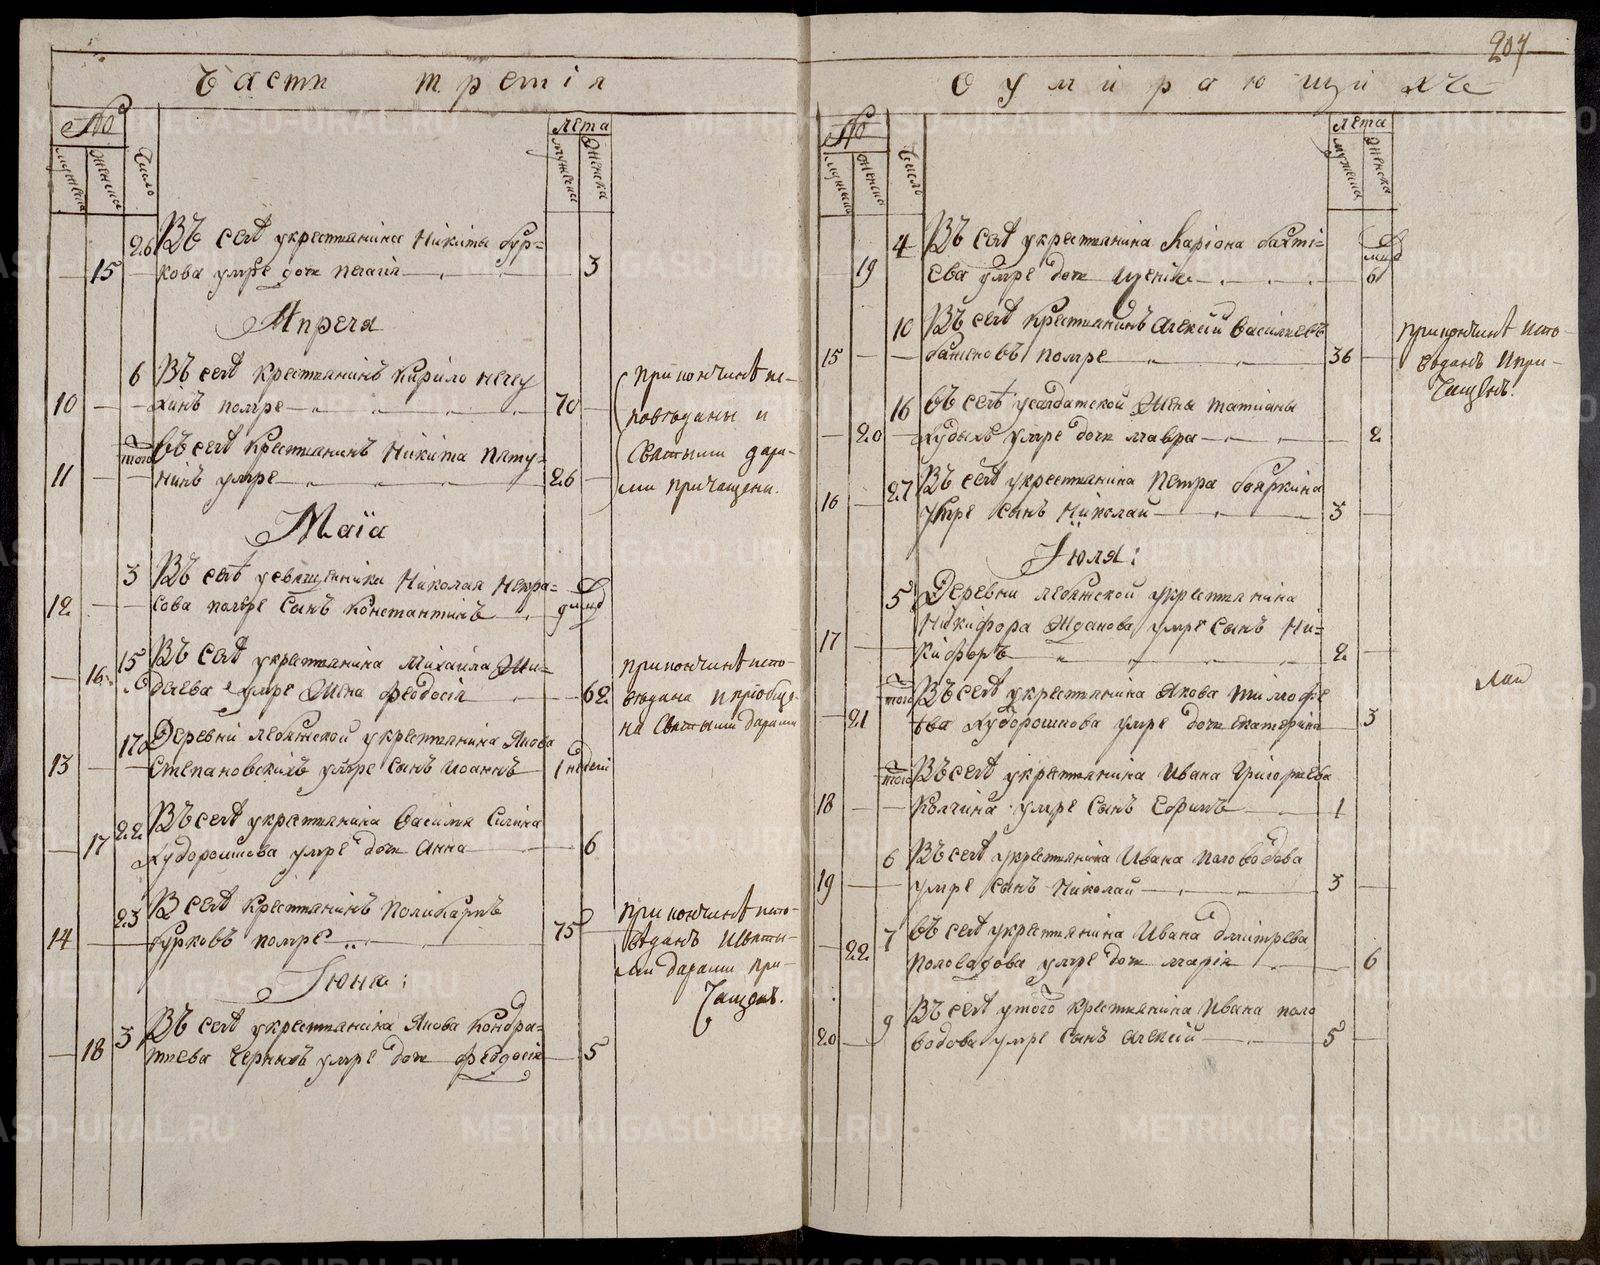 204
Часть третія
№ лета
мужеска женска число мужеска женска
15 26 Въ селѣ укрестьянина Никиты бур=
кова умре дочь пелагія 3
Апреля
10 6 Въ селѣ крестьянинъ Кирило
хинъ помре 70
При кончинѣ ис-
поведаны и
Святыми дара-
ми причащены.
11 того Въ селѣ крестьянинъ Никита пяту=
нинъ умре 26
Маїа
12 3 Въ селѣ усвященника Николая Некра=
сова помре сынъ константинъ
16 15 Въ селѣ укрестьянина михаила
деева умре жена феодосія 62
При кончинѣ испо-
ведана и приобще-
на Святыми дарами
13 17 Деревни лебяжской укрестьянина Якова
Степановскихъ умре сынъ иоаннъ 1 недели
17 22 Въ селѣ укрестьянина василья Силина
худорошкова умре дочь Анна 6
14 23 В селѣ крестьянинъ Поликарпъ
бурковъ помре 75
При кончинѣ испо-
веданъ Исвяты-
ми дарами при-
чащенъ.
Іюня:
18 3 Въ селѣ укрестьянина Якова Кондра=
тиева Черныхъ умре дочь феодосія 5
О умирающихъ
№ лета
мужеска женска число мужеска женска
19 4 Въ селѣ укрестьянина Ларіона бахті=
ева умре дочь 6
15 10 Въ селѣ Крестьянинъ Алексій Васильевъ
баженовъ помре 36
При кончинѣ испо-
веданъ Ипри-
чащенъ.
20 16 Въ селѣ усалдатской жены татианы
худыхъ умре дочь мавра 2
16 27 Въ селѣ укрестьянина Петра бояркина
умре сынъ Николай 3
Іюля:
17 5 Деревни лебяжской укрестьянина
Никифора Жданова умре сынъ Ни=
кифоръ 2
21 того Въ селѣ укрестьянина Якова Тимофе
ева худорошкова умре дочь екатерина 3
18 того Въ селѣ укрестьянина Ивана Григорьева
Колчина умре сынъ Ефимъ 1
19 6 Въ селѣ укрестьянина Ивана половодова
умре сынъ Николай 3
22 7 Въ селѣ укрестьянина Ивана дмитрева
половодова умре дочь марія 6
20 9 Въ селѣ утого крестьянина Ивана поло
водова умре сынъ Алексій 5
METRIKI.GASO-URAL.RU